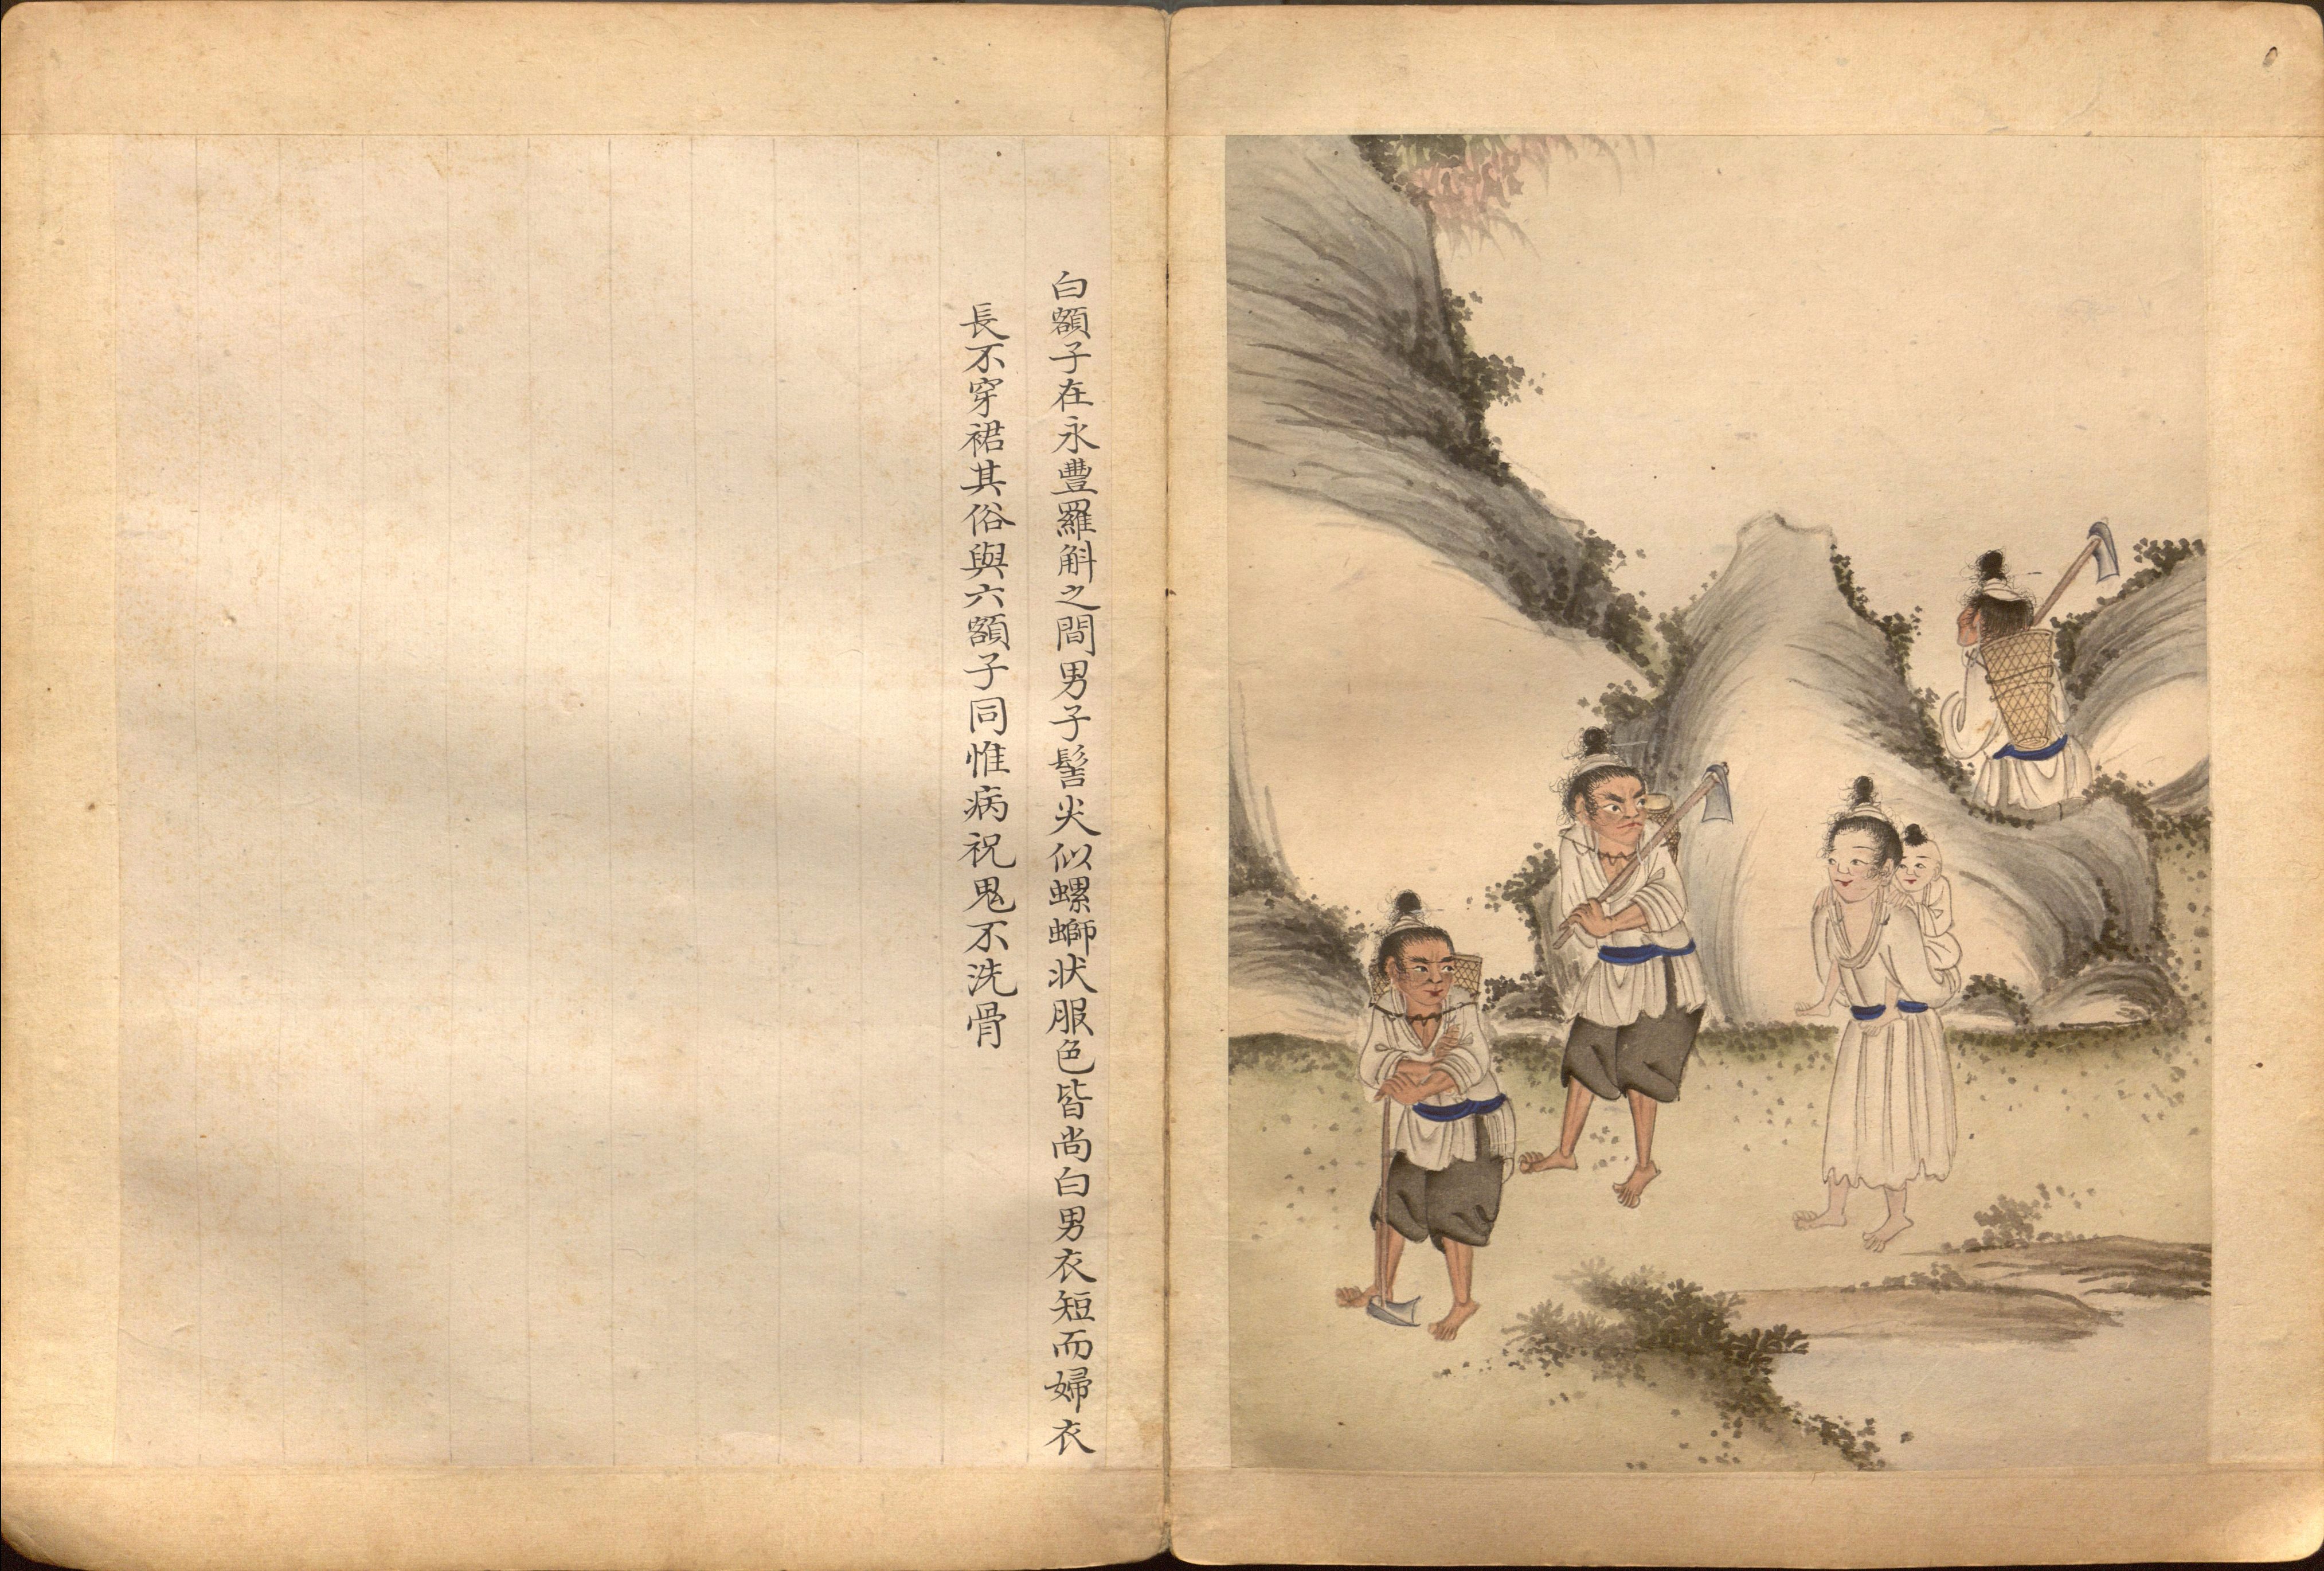 白額子在永豐羅斛之間男子髻尖似螺螄状服色皆尚白男衣短而婦衣
長不穿裙其俗與六額子同惟病祝鬼不洗骨